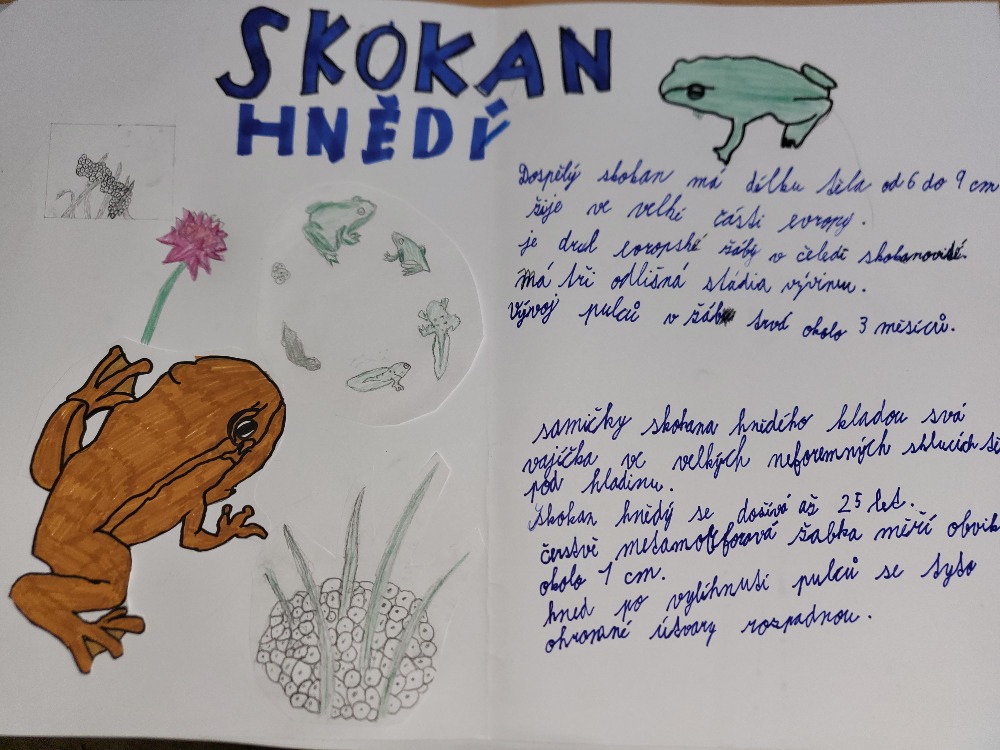 SKOKAN
HNĚDÝ
Dospělý skokan má délku těla od 6 do 9 cm
žije ve velké části evropy.
je druh evropské žáby v čeledi skokanovití.
Má tři odlišná stádia vývinu.
Vývoj pulců v žábu trvá okolo 3 měsíců.
samičky skokana hnědého kladou svá
vajíčka ve velkých neforemných shlucích
pod hladinu.
Skokan hnědý se dožívá až 25 let.
čerstvě metamorforová žabka měří obvik
okolo 1 cm.
hned po vylíhnutí pulců se tyto
ohrané útvary rozpadnou.